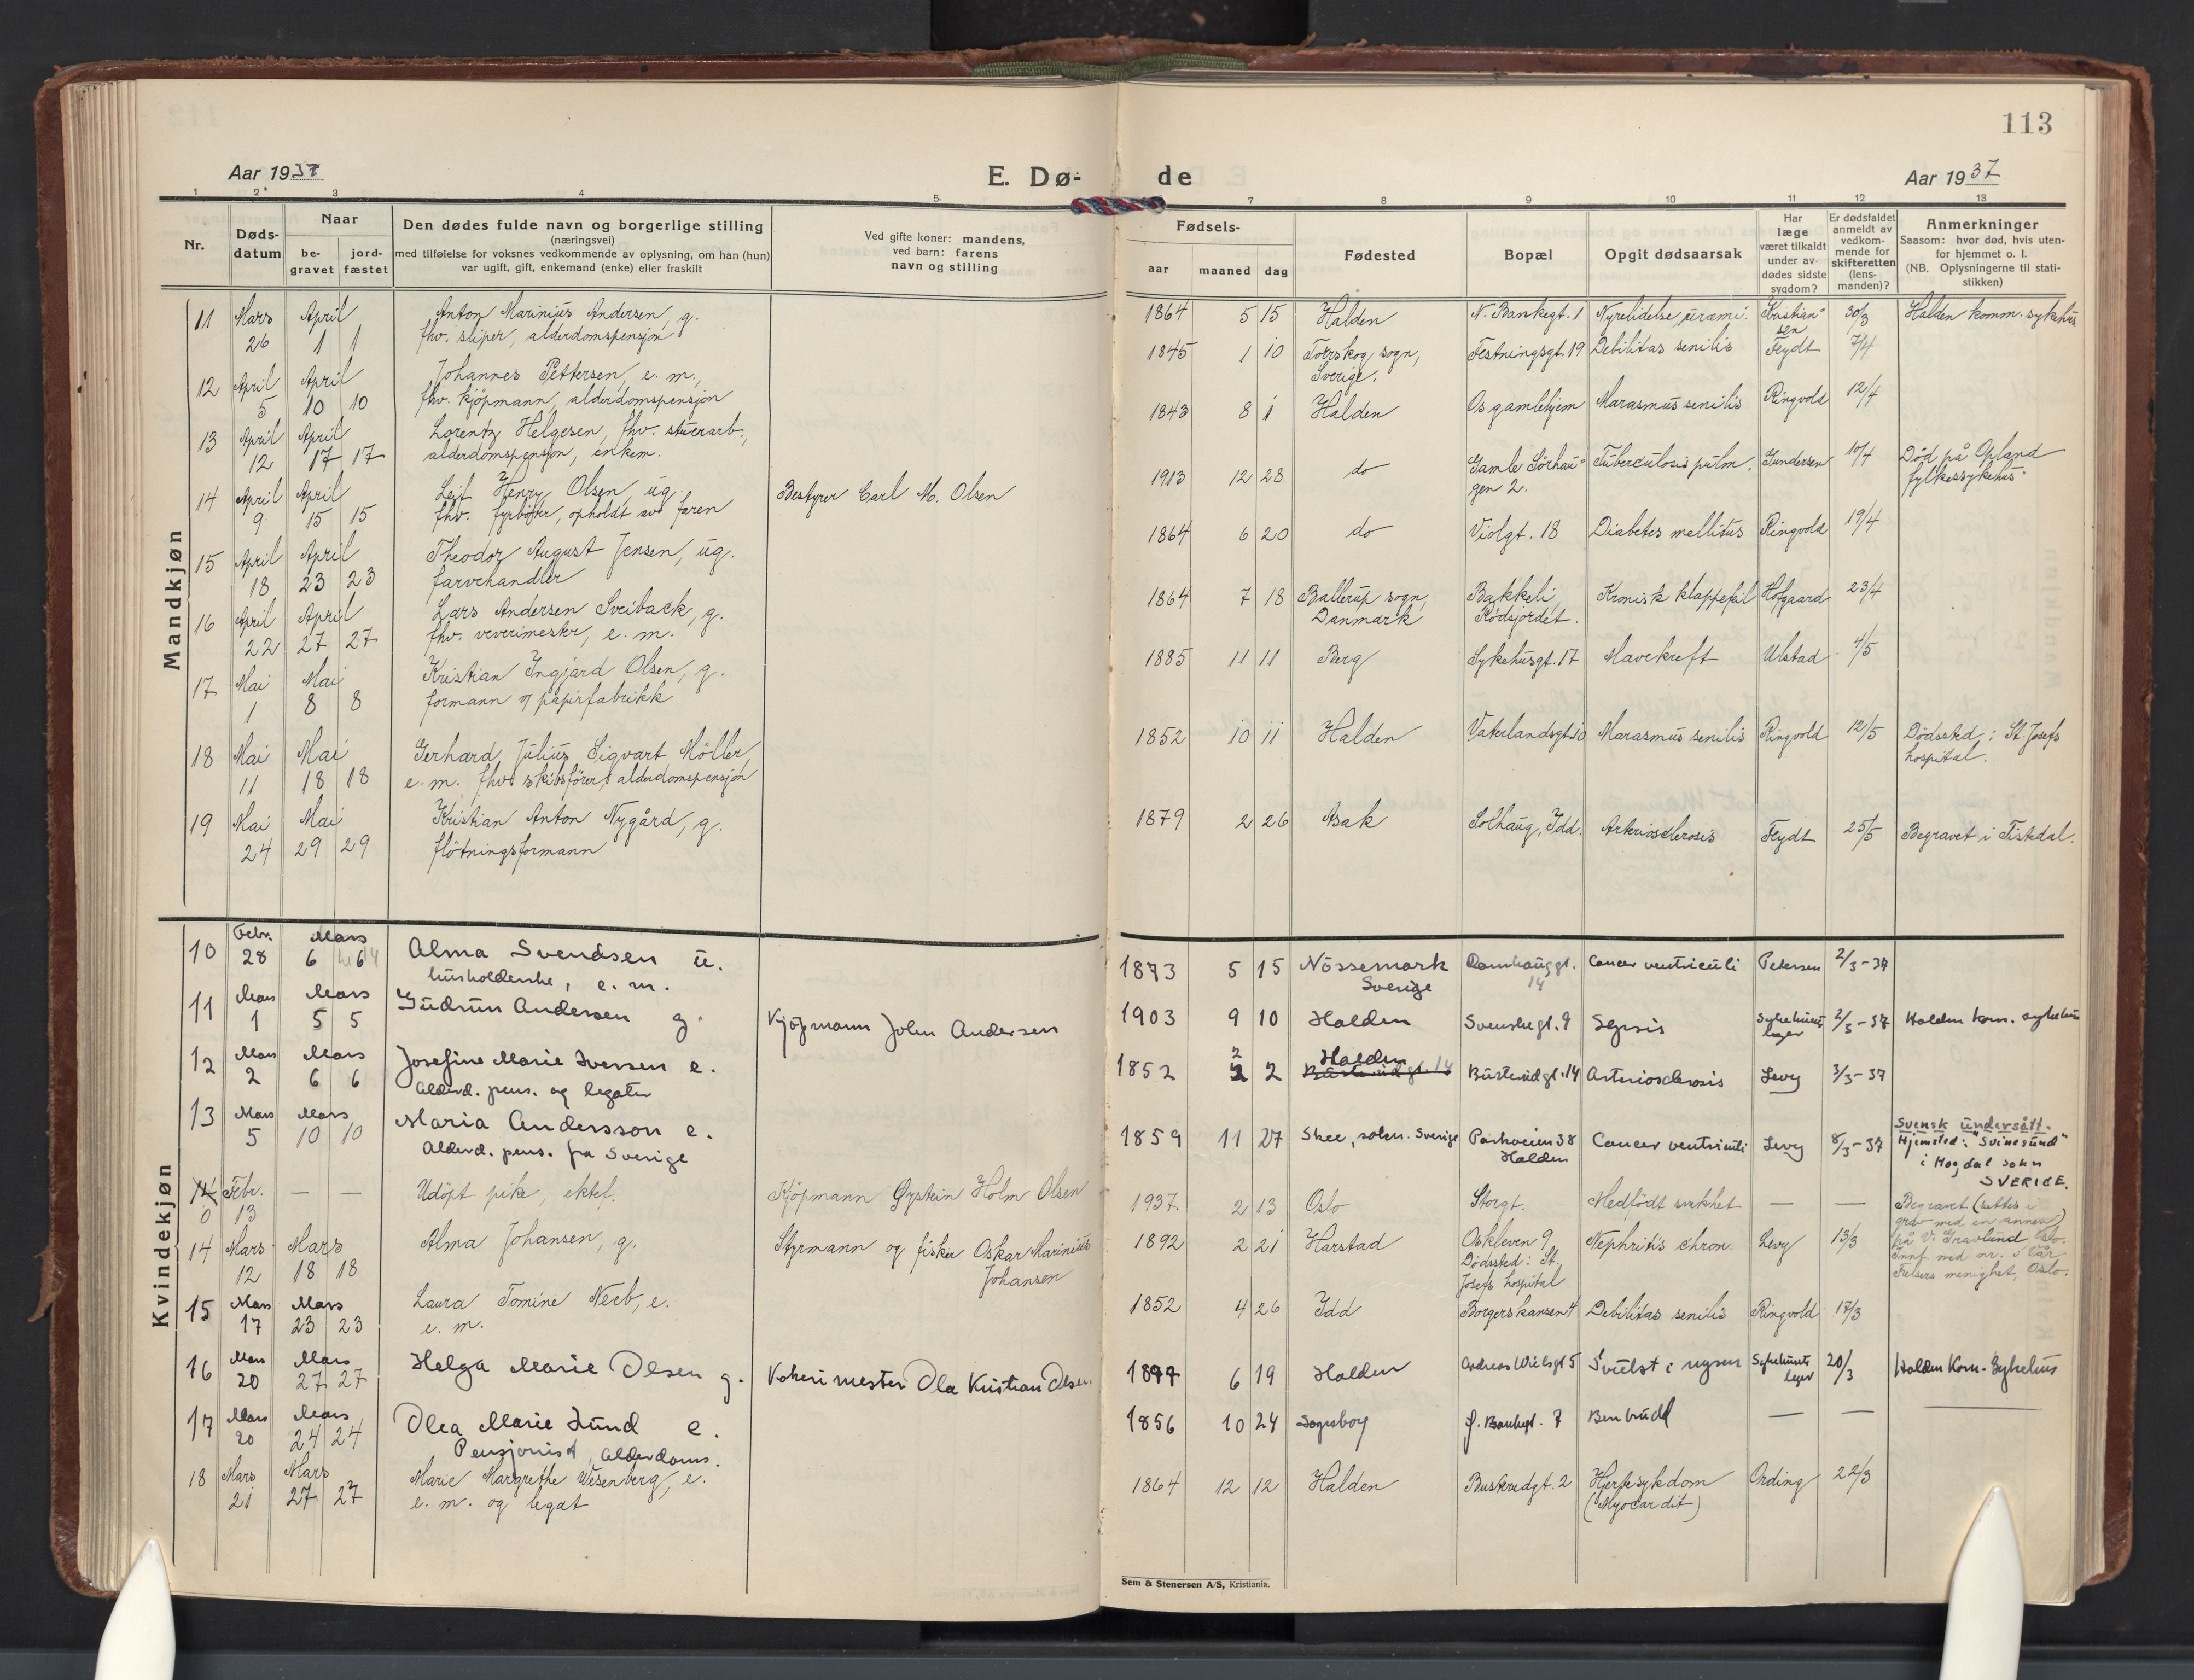 113
Aar 1937
E. Dø-
de
Aar 1937
1 2 3 4 5
7 8 9 10 11 12 13
Nr.
Døds-
datum
Naar
be-
gravet
jord-
fæstet
Den dødes fulde navn og borgerlige stilling
(næringsvei)
med tilføielse for voksnes vedkommende av oplysning, om han (hun)
var ugift, gift, enkemand (enke) eller fraskilt
Ved gifte koner: mandens,
ved barn: farens
navn og stilling
Fødsels-
aar maaned dag
Fødested
Bopæl
Opgit dødsaarsak
Har
læge
været tilkaldt
under av-
dødes sidste
sygdom?
Er dødsfaldet
anmeldt av
vedkom-
mende for
skifteretten
(lens-
manden)?
Anmerkninger
Saasom: hvor død, hvis uten-
for hjemmet o. l.
(NB. Oplysningerne til stati-
stikken)
Mandkjøn
11 Mars April Anton Marinius Andersen, g. 1864 5 15 Halden N. Bankegt. 1 Nyrelidelse, uræmi. Kristian- 30/3 Halden komm. sykehus
26 1 1 fhv. sliper, alderdomspensjon sen
12 April April Johannes Pettersen, e. m., 1845 1 10 Torrskog sogn, Festningsgt. 19 Debilitas senilis Feydt 7/4
5 10 10 fhv. kjöpmann, alderdomspensjon Sverige.
13 April April Lorentz Helgesen, fhv. stuerarb., 1843 8 1 Halden Os gamlehjem Marasmus senilis Ringvold 12/4
12 17 17 alderdomspensjon, enkem.
14 April April Leif Henry Olsen, ug. Bestyrer Carl M. Olsen 1913 12 28 do Gamle Sörhau- Tuberculosis pulm. Gundersen 10/4 Död på Opland
9 15 15 fhv. fyrböter, opholdt av faren gen 2. fylkessykehus.
15 April April Theodor August Jensen, ug. 1864 6 20 do Violgt. 18 Diabetes mellitus Ringvold 19/4
18 23 23 farvehandler
16 April April Lars Andersen Sveiback, g. 1864 7 18 Ballerup sogn, Bakkeli Kronisk klappefeil Hofgaard 23/4
22 27 27 fhv. vevermester, e. m. Danmark Rödsjordet.
17 Mai Mai Kristian Ingjard Olsen, g. 1885 11 11 Berg Sykehusgt. 17 Mavekreft Ulstad 4/5
1 8 8 formann v/ papirfabrikk
18 Mai Mai Gerhard Julius Sigvart Möller, 1852 10 11 Halden Vaterlandsgt. 10 Marasmus senilis Ringvold 12/5 Dödssted: St. Josefs
11 18 18 e. m. fhv. skibsförer, alderdomspensjon hospital.
19 Mai Mai Kristian Anton Nygård, g. 1879 2 26 Asak Solhaug, Idd. Arteriosclerosis Feydt 25/5 Begravet i Tistedal.
24 29 29 flötningsformann
Kvindekjøn
10 Febr. Mars Alma Svendsen u. 1873 5 15 Nössemark Cancer ventriculi Petersen 2/3-37
28 6 6 husholderske, e. m. Sverige 14
11 Mars Mars Gudrun Andersen g. Kjöpmann John Andersen 1903 9 10 Halden Svenskegt. 9 Sepsis Sykehusets 2/3-37 Halden kom. sykehus
1 5 5 lege
12 Mars Mars Josefine Marie Iversen e. 1852 2 2 Halden Busterudgt. 14 Arteriosclerosis Levy 3/3-37
2 6 6 Alderd. pens. og legater Busterudgt. 14
13 Mars Mars Maria Andersson e. 1859 11 27 Skee, sokn. Sverige Parkveien 38 Cancer ventriculi Levy 8/3-37 Svensk undersått.
5 10 10 Alderd. pens. fra Sverige Halden Hjemsted: "Svinesund"
i Hogdal sokn
SVERIGE.
0 Febr. — — Udöpt pike, ektef. Kjöpmann Øystein Holm Olsen 1937 2 13 Oslo Storgt. Medfödt svakhet — — Begravet (settes i
13 grav med en annen)
14 Mars Mars Alma Johansen, g. Styrmann og fisker Oskar Marinius 1892 2 21 Harstad Oskleven 9 Nephritis chron. Levy 13/3 på V. Gravlund Oslo.
12 18 18 Johansen Dödssted: St. Innf. med nr. i Vår
Josefs hospital Frelsers menighet, Oslo.
15 Mars Mars Laura Tomine Neeb, e. 1852 4 26 Idd Borgerskansen 4 Debilitas senilis Ringvold 17/3
17 23 23 e. m.
16 Mars Mars Helga Marie Olsen g. Ola Kristian Olsen 1877 6 19 Halden Andreas Wielsgt 5 Svulst i nyren Sykehusets 20/3 Halden Kom. Sykehus
20 27 27 lege
17 Mars Mars Olea Marie Lund e. 1856 10 24 7 Ben brudd — — —
20 24 24 Pensjonist, alderdoms.
18 Mars Mars Marie Margrethe Wesenberg, e. 1864 12 12 Halden Busterudgt. 2 Hjertesykdom Ording 22/3
21 27 27 e. m. og legat (Myocardit)
Sem & Stenersen A/S, Kristiania.